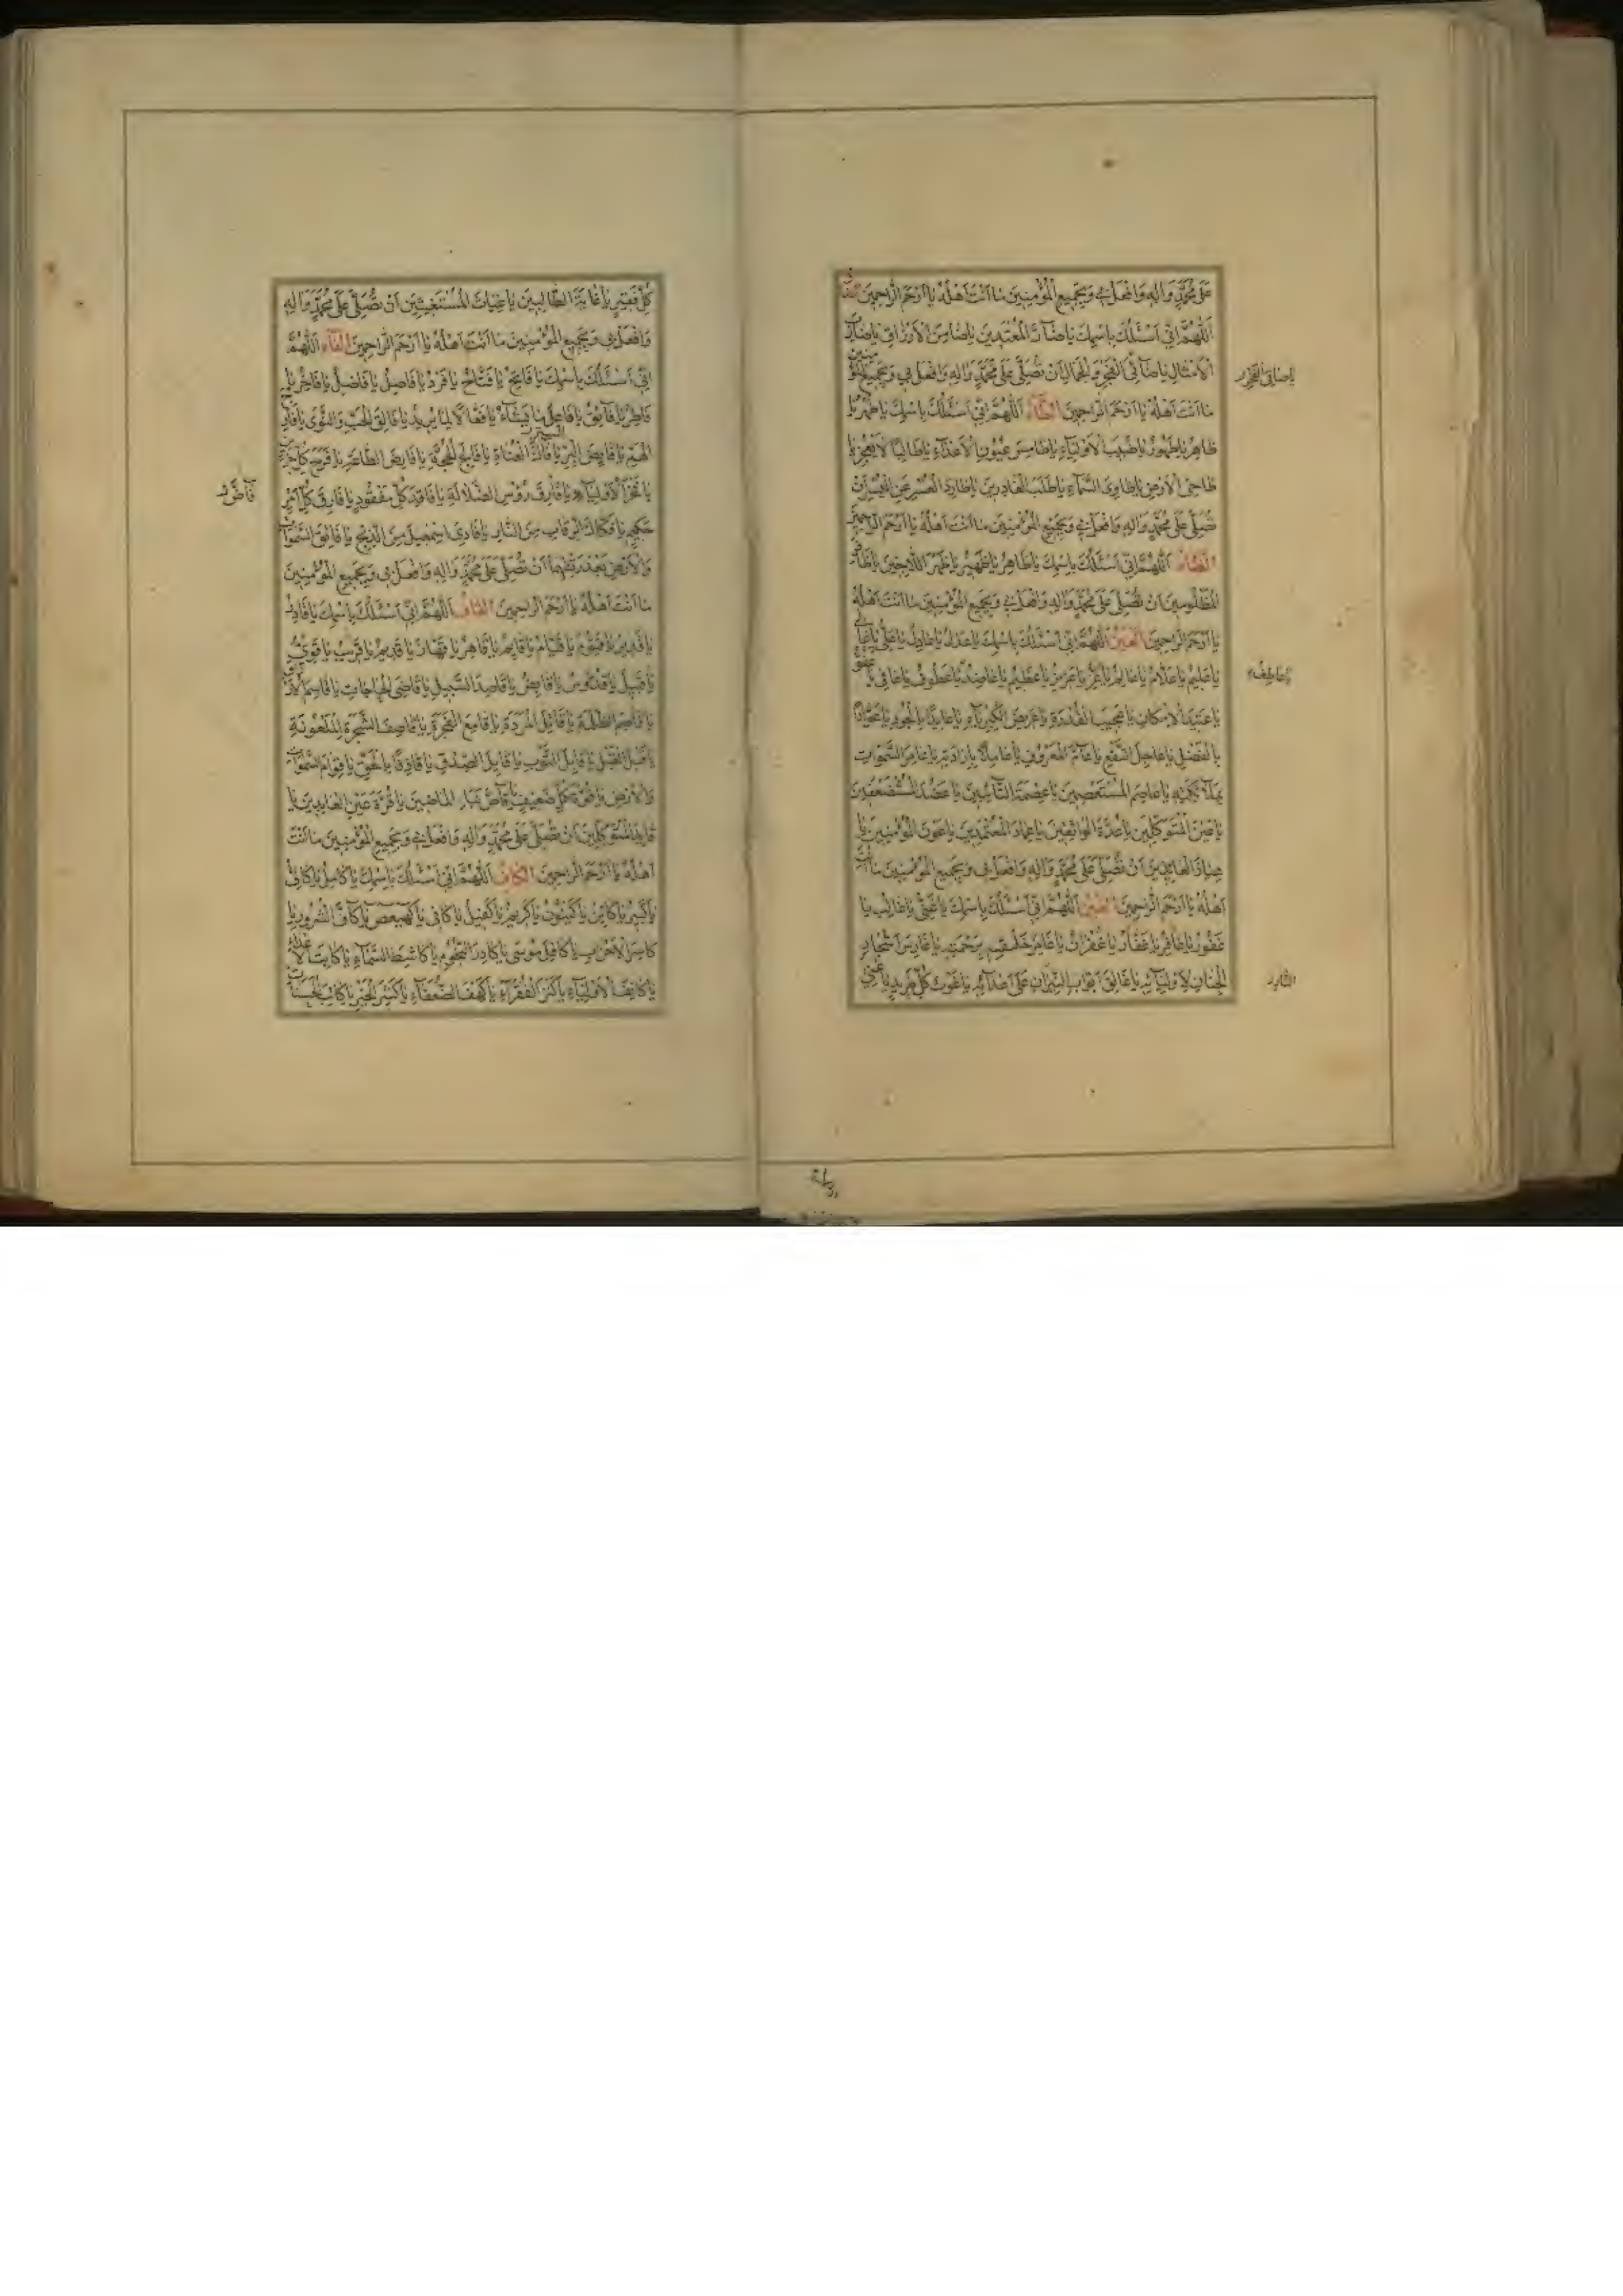 عَلىٰ مُحَمَّدٍ وَآلِهِ وَافْعَلْ بِي وَبِجَمِيعِ الْمُؤْمِنِينَ مَا أَنْتَ أَهْلُهُ يَا أَرْحَمَ الرَّاحِمِينَ
اَللّٰهُمَّ اِنِّي اَسْئَلُكَ بِاسْمِكَ يَا ضَآرَّ الْمُعْتَدِينَ يَا ضَامِنَ الْأَرْزَاقِ يَا ضَارِبَ
الْأَمْثَالِ يَا ضَآفِيَ الْفَخْرِ وَالْجَمَالِ اَنْ تُصَلِّيَ عَلىٰ مُحَمَّدٍ وَآلِهِ وَافْعَلْ بِي وَبِجَمِيعِ الْمُؤْمِنِينَ
مَا أَنْتَ أَهْلُهُ يَا أَرْحَمَ الرَّاحِمِينَ الطَّآءُ اَللّٰهُمَّ اِنِّي اَسْئَلُكَ بِاسْمِكَ يَا طُهْرُ يَا
طَاهِرُ يَا طَهُورُ يَا طَبِيبَ الْأَوْلِيَآءِ يَا طَامِسَ عُيُونِ الْأَعْدَآءِ يَا طَالِبًا لَا يَعْجِزُ يَا
طَاحِيَ الْأَرْضِ يَا طَاوِيَ السَّمَآءِ يَا طَلَبَ الْغَادِرِينَ يَا طَارِدَ الْعُسْرِ عَنِ الْيُسْرِ اَنْ
تُصَلِّيَ عَلىٰ مُحَمَّدٍ وَآلِهِ وَافْعَلْ بِي وَبِجَمِيعِ الْمُؤْمِنِينَ مَا أَنْتَ أَهْلُهُ يَا أَرْحَمَ الرَّاحِمِينَ
الظَّآءُ اَللّٰهُمَّ اِنِّي اَسْئَلُكَ بِاسْمِكَ يَا ظَاهِرُ يَا ظَهِيرُ يَا ظَهْرَ اللَّاجِينَ
الْمَظْلُومِينَ اَنْ تُصَلِّيَ عَلىٰ مُحَمَّدٍ وَآلِهِ وَافْعَلْ بِي وَبِجَمِيعِ الْمُؤْمِنِينَ مَا أَنْتَ أَهْلُهُ
يَا أَرْحَمَ الرَّاحِمِينَ الْعَيْنُ اَللّٰهُمَّ اِنِّي اَسْئَلُكَ بِاسْمِكَ يَا عَدْلُ يَا عَادِلُ يَا عَلِيُّ يَا عَالِي
يَا عَلِيمُ يَا عَلَّامُ يَا عَالِمُ يَا عِزُّ يَا عَزِيزُ يَا عَظِيمُ يَا عَاضِدُ يَا عَطُوفُ يَا عَافِي يَا عَفُوُّ
يَا عَتِيدَ الْأَمْكَانِ يَا عَجِيبَ الْقُدْرَةِ يَا عَرِيضَ الْكِبْرِيَآءِ يَا عَائِدًا بِالْجُودِ يَا عَوَّادًا
بِالْفَضْلِ يَا عَاجِلَ النَّفْعِ يَا عَآمَّ الْمَعْرُوفِ يَا عَامِلًا بِإِرَادَتِهِ يَا عَامِرَ السَّمٰوَاتِ
بِمَلَآئِكَتِهِ يَا عَاصِمَ الْمُسْتَعْصِمِينَ يَا عِصْمَةَ التَّآئِبِينَ يَا عَضُدَ الْمُسْتَضْعَفِينَ
يَا عَيْنَ الْمُتَوَكِّلِينَ يَا عُدَّةَ الْوَاثِقِينَ يَا عِمَادَ الْمُعْتَمِدِينَ يَا عَوْنَ الْمُؤْمِنِينَ يَا
عِيَاذَ الْعَائِذِينَ اَنْ تُصَلِّيَ عَلىٰ مُحَمَّدٍ وَآلِهِ وَافْعَلْ بِي وَبِجَمِيعِ الْمُؤْمِنِينَ مَا أَنْتَ
أَهْلُهُ يَا أَرْحَمَ الرَّاحِمِينَ الْغَيْنُ اَللّٰهُمَّ اِنِّي اَسْئَلُكَ بِاسْمِكَ يَا غَنِيُّ يَا غَالِبُ يَا
غَفُورُ يَا غَافِرُ يَا غَفَّارُ يَا غُفْرَانُ يَا غَامِرَ خَلْقِهِ بِرَحْمَتِهِ يَا غَارِسَ أَشْجَارِ
الْجِنَانِ لِأَوْلِيَآئِهِ يَا غَالِقَ أَبْوَابِ النِّيرَانِ عَلىٰ أَعْدَآئِهِ يَا غَوْثَ كُلِّ طَرِيدٍ يَا غِنىٰ
عَاطِفُ
كُلِّ فَقِيرٍ يَا غَايَةَ الطَّالِبِينَ يَا غِيَاثَ الْمُسْتَغِيثِينَ اَنْ تُصَلِّيَ عَلىٰ مُحَمَّدٍ وَآلِهِ
وَافْعَلْ بِي وَبِجَمِيعِ الْمُؤْمِنِينَ مَا أَنْتَ أَهْلُهُ يَا أَرْحَمَ الرَّاحِمِينَ الْفَآءُ اَللّٰهُمَّ
اِنِّي اَسْئَلُكَ بِاسْمِكَ يَا فَاتِحُ يَا فَتَّاحُ يَا فَرْدُ يَا فَاصِلُ يَا فَاضِلُ يَا فَاخِرُ يَا
فَاطِرُ يَا فَآئِقُ يَا فَاعِلَ مَا يَشَآءُ يَا فَعَّالًا لِمَا يُرِيدُ يَا فَالِقَ الْحَبِّ وَالنَّوىٰ يَا فَارِجَ
الْهَمِّ يَا فَايِضَ الْبِرِّ يَا فَآكَّ الْعُنَاةِ يَا فَالِجَ الْحُجَّةِ يَا فَارِضَ الطَّاعَةِ يَا فَرَجَ كُلِّ حَزِينٍ
يَا فَخْرَ الْأَوْلِيَآءِ يَا فَارِقَ رُؤُسِ الضَّلَالَةِ يَا فَاقِدَ كُلِّ مَفْقُودٍ يَا فَارِقَ كُلِّ أَمْرٍ
حَكِيمٍ يَا فَكَّاكَ الرِّقَابِ مِنَ النَّارِ يَا فَادِيَ إِسْمٰعِيلَ مِنَ الذَّبْحِ يَا فَاتِقَ السَّمٰوَاتِ
وَالْأَرْضِ بَعْدَ رَتْقِهِمَا اَنْ تُصَلِّيَ عَلىٰ مُحَمَّدٍ وَآلِهِ وَافْعَلْ بِي وَبِجَمِيعِ الْمُؤْمِنِينَ
مَا أَنْتَ أَهْلُهُ يَا أَرْحَمَ الرَّاحِمِينَ الْقَافُ اَللّٰهُمَّ اِنِّي اَسْئَلُكَ بِاسْمِكَ يَا قَادِرُ
يَا قَدِيرُ يَا قَيُّومُ يَا قَيَّامُ يَا قَآئِمُ يَا قَاهِرُ يَا قَهَّارُ يَا قَدِيمُ يَا قَرِيبُ يَا قَوِيُّ
يَا قَبِيلُ يَا قُدُّوسُ يَا قَابِضُ يَا قَاصِدَ السَّبِيلِ يَا قَاضِيَ الْحَاجَاتِ يَا قَاسِمَ الْأَرْزَاقِ
يَا قَاصِمَ الظَّلَمَةِ يَا قَاتِلَ الْمَرَدَةِ يَا قَامِعَ الْفَجَرَةِ يَا قَاصِفَ الشَّجَرَةِ الْمَلْعُونَةِ
يَا قَبْلَ الْقَبْلِ يَا قَابِلَ التَّوْبِ يَا قَائِلَ الصِّدْقِ يَا قَاذِفًا بِالْحَقِّ يَا قِوَامَ السَّمٰوَاتِ
وَالْأَرْضِ يَا قُوَّةَ كُلِّ ضَعِيفٍ يَا قَآصَّ نَبَإِ الْمَاضِينَ يَا قُرَّةَ عَيْنِ الْعَابِدِينَ يَا
قَائِدَ الْمُتَوَكِّلِينَ اَنْ تُصَلِّيَ عَلىٰ مُحَمَّدٍ وَآلِهِ وَافْعَلْ بِي وَبِجَمِيعِ الْمُؤْمِنِينَ مَا أَنْتَ
أَهْلُهُ يَا أَرْحَمَ الرَّاحِمِينَ الْكَافُ اَللّٰهُمَّ اِنِّي اَسْئَلُكَ بِاسْمِكَ يَا كَامِلُ يَا كَافِي
يَا كَبِيرُ يَا كَآئِنُ يَا كَيْنُونُ يَا كَرِيمُ يَا كَفِيلُ يَا كَافِي يَا كهيعص يَا كَآفَّ الشُّرُورِ يَا
كَاسِرَ الْأَحْزَابِ يَا كَافِلَ مُوسىٰ يَا كَادِرَ النُّجُومِ يَا كَاشِطَ السَّمَآءِ يَا كَابِتَ الْأَعْدَآءِ
يَا كَانِفَ الْأَوْلِيَآءِ يَا كَنْزَ الْفُقَرَآءِ يَا كَهْفَ الضُّعَفَآءِ يَا كَثِيرَ الْخَيْرِ يَا كَاتِبَ الْحَسَنَاتِ